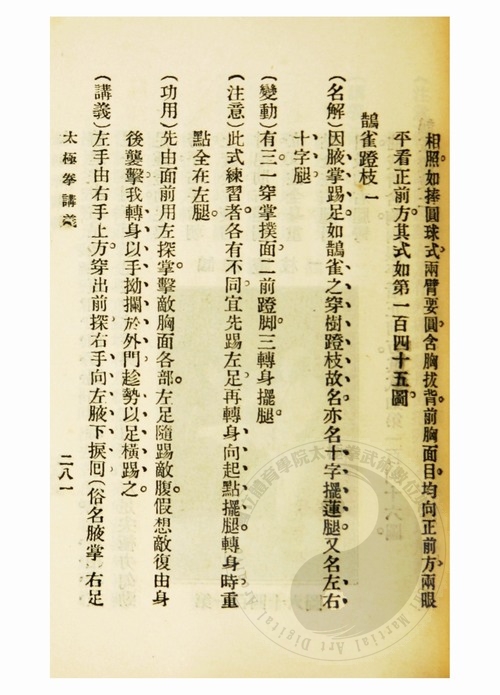 相照如捧圓球式兩臂要圓含胸拔背前胸面目均向正前方兩眼
平看正前方其式如第一百四十五圖
鵲雀蹬枝一
(名解)因腋掌踢足如鵲雀之穿樹蹬枝故名亦名十字擺蓮腿又名左右
十字腿
(變動)有三一穿掌撲面二前蹬脚三轉身擺腿
(注意)此式練習者各有不同宜先踢左足再轉身向起點擺腿轉身時重
點全在左腿
(功用)先由面前用左探掌擊敵胸面各部左足隨踢敵腹假想敵復由身
後襲擊我轉身以手拗攔於外門趁勢以足橫踢之
(講義)左手由右手上方穿出前探右手向左腋下捩回(俗名腋掌 右足
太極拳講義
二八一
Martial Art Digital